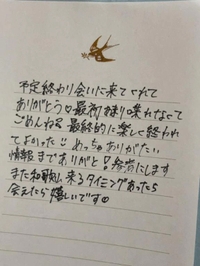 予定終わり会いに来てくれて
ありがとう♡最初余り喋れなくて
ごめんね💦最終的に楽しく終われて
てよかった☺めっちゃありがたい
情報まであがと!参考にします
また和歌山来るタイミングあったら
会えたら嬉しいです☺